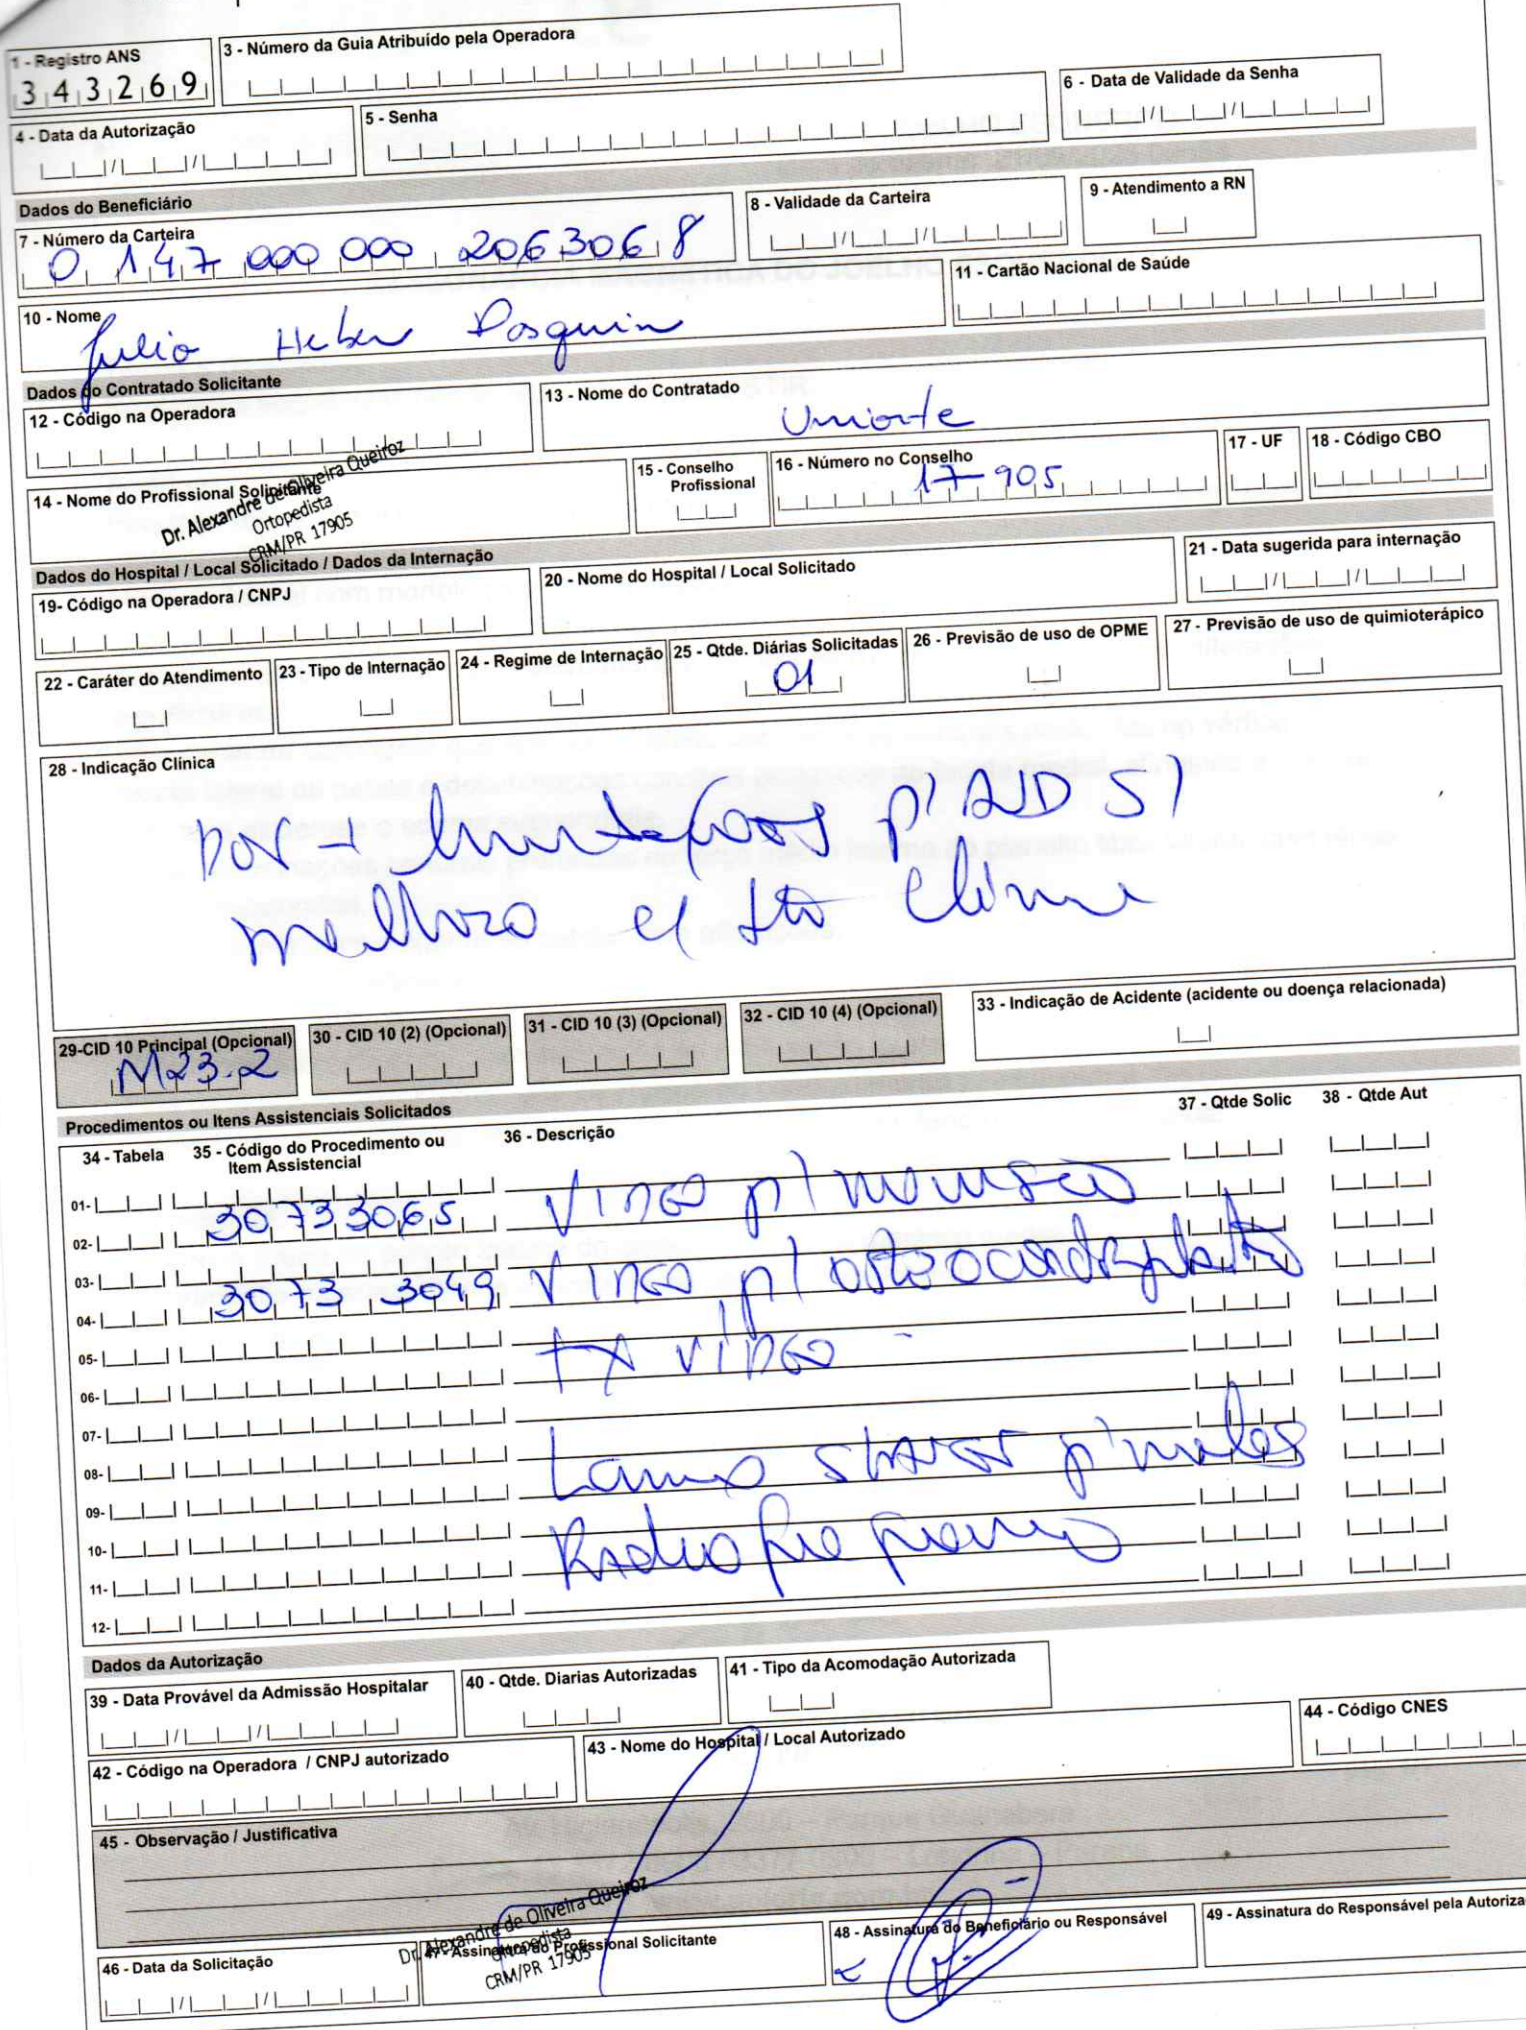 1 - Registro ANS
343269
3 - Número da Guia Atribuído pela Operadora
4 - Data da Autorização
5 - Senha
6 - Data de Validade da Senha
Dados do Beneficiário
7 - Número da Carteira
0 147 000 000 2063068
8 - Validade da Carteira
9 - Atendimento a RN
10 - Nome
Julio Heber
11 - Cartão Nacional de Saúde
Dados do Contratado Solicitante
12 - Código na Operadora
13 - Nome do Contratado
Uniorte
14 - Nome do Profissional Solicitante
Dr. Alexandre de Oliveira Queiroz
Ortopedista
CRM/PR 17905
15 - Conselho Profissional
16 - Número no Conselho
17905
17 - UF
18 - Código CBO
Dados do Hospital / Local Solicitado / Dados da Internação
19- Código na Operadora / CNPJ
20 - Nome do Hospital / Local Solicitado
21 - Data sugerida para internação
22 - Caráter do Atendimento
23 - Tipo de Internação
24 - Regime de Internação
25 - Qtde. Diárias Solicitadas
01
26 - Previsão de uso de OPME
27 - Previsão de uso de quimioterápico
28 - Indicação Clínica
Dor - limitações p/ AVD s/
melhora c/ tto
29-CID 10 Principal (Opcional)
M23.2
30 - CID 10 (2) (Opcional)
31 - CID 10 (3) (Opcional)
32 - CID 10 (4) (Opcional)
33 - Indicação de Acidente (acidente ou doença relacionada)
Procedimentos ou Itens Assistenciais Solicitados
34 - Tabela
35 - Código do Procedimento ou Item Assistencial
36 - Descrição
37 - Qtde Solic
38 - Qtde Aut
01-
02- 30733065 Video p/
03-
04- 30733049 Video p/
05- TX video
06-
07-
08- p/
09-
10-
11-
12-
Dados da Autorização
39 - Data Provável da Admissão Hospitalar
40 - Qtde. Diarias Autorizadas
41 - Tipo da Acomodação Autorizada
42 - Código na Operadora / CNPJ autorizado
43 - Nome do Hospital / Local Autorizado
44 - Código CNES
45 - Observação / Justificativa
46 - Data da Solicitação
47 - Assinatura do Profissional Solicitante
Dr. Alexandre de Oliveira Queiroz
Ortopedista
CRM/PR 17905
48 - Assinatura do Beneficiário ou Responsável
49 - Assinatura do Responsável pela Autoriza